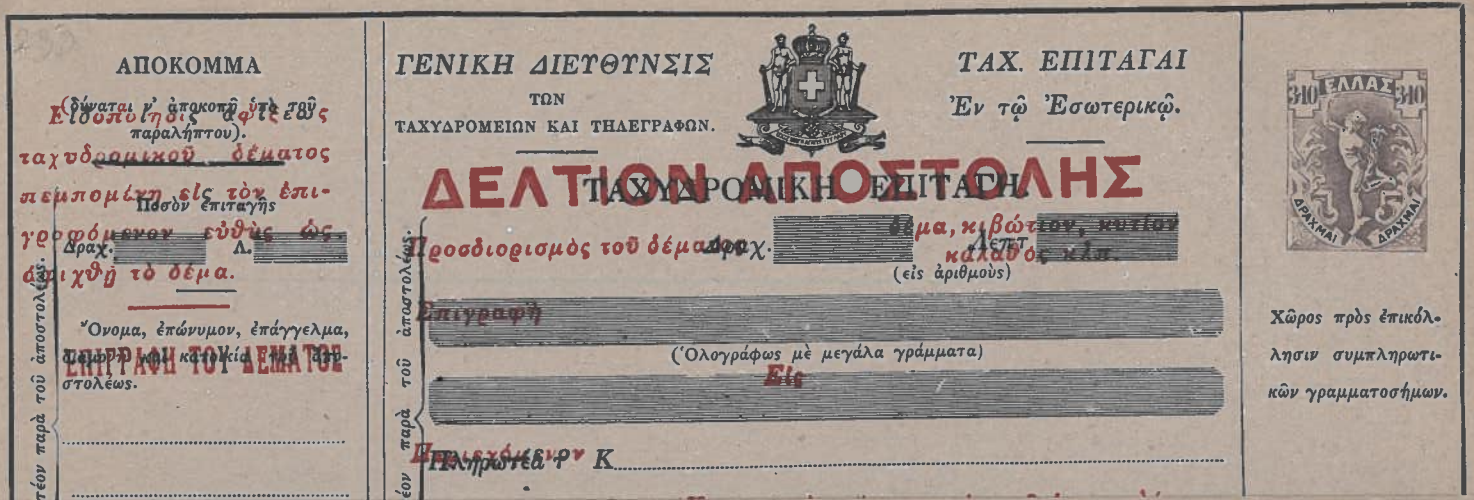 ΑΠΟΚΟΜΜΑ
(δύναται ν' ἀποκοπῇ ὑπὸ τοῦ
παραλήπτου).
Εἰδοποίησις ἀφίξεως
ταχυδρομικοῦ δέματος
εἰς τὸν ἐπι-
εὐθὺς ὡς
τὸ δέμα.
Ποσὸν ἐπιταγῆς
Δραχ. Λ.
Ὄνομα, ἐπώνυμον, ἐπάγγελμα,
καὶ κατοικία τοῦ ἀπο-
στολέως.
ΕΠΙΓΡΑΦΗ ΤΟΥ ΔΕΜΑΤΟΣ
τέον παρὰ τοῦ ἀποστολέως.
ΓΕΝΙΚΗ ΔΙΕΥΘΥΝΣΙΣ
ΤΩΝ
ΤΑΧΥΔΡΟΜΕΙΩΝ ΚΑΙ ΤΗΛΕΓΡΑΦΩΝ.
ΤΑΧ. ΕΠΙΤΑΓΑΙ
Ἐν τῷ Ἐσωτερικῷ.
ΔΕΛΤΙΟΝ ΑΠΟΣΤΟΛΗΣ
ΤΑΧΥΔΡΟΜΙΚΗ ΕΠΙΤΑΓΗ
Προσδιορισμὸς τοῦ δέματος
δέμα, κιβώτιον, κυτίον
καλαθὸς κλπ.
Δραχ. Λεπτ.
(εἰς ἀριθμοὺς)
Ἐπιγραφὴ
(Ὁλογράφως μὲ μεγάλα γράμματα)
Εἰς
Περιεχόμενον
Πληρωτέα Κ
έον παρὰ τοῦ ἀποστολέως.
ΕΛΛΑΣ
3·10 3·10
ΔΡΑΧΜΑΙ ΔΡΑΧΜΑΙ
Χῶρος πρὸς ἐπικόλ-
λησιν συμπληρωτι-
κῶν γραμματοσήμων.